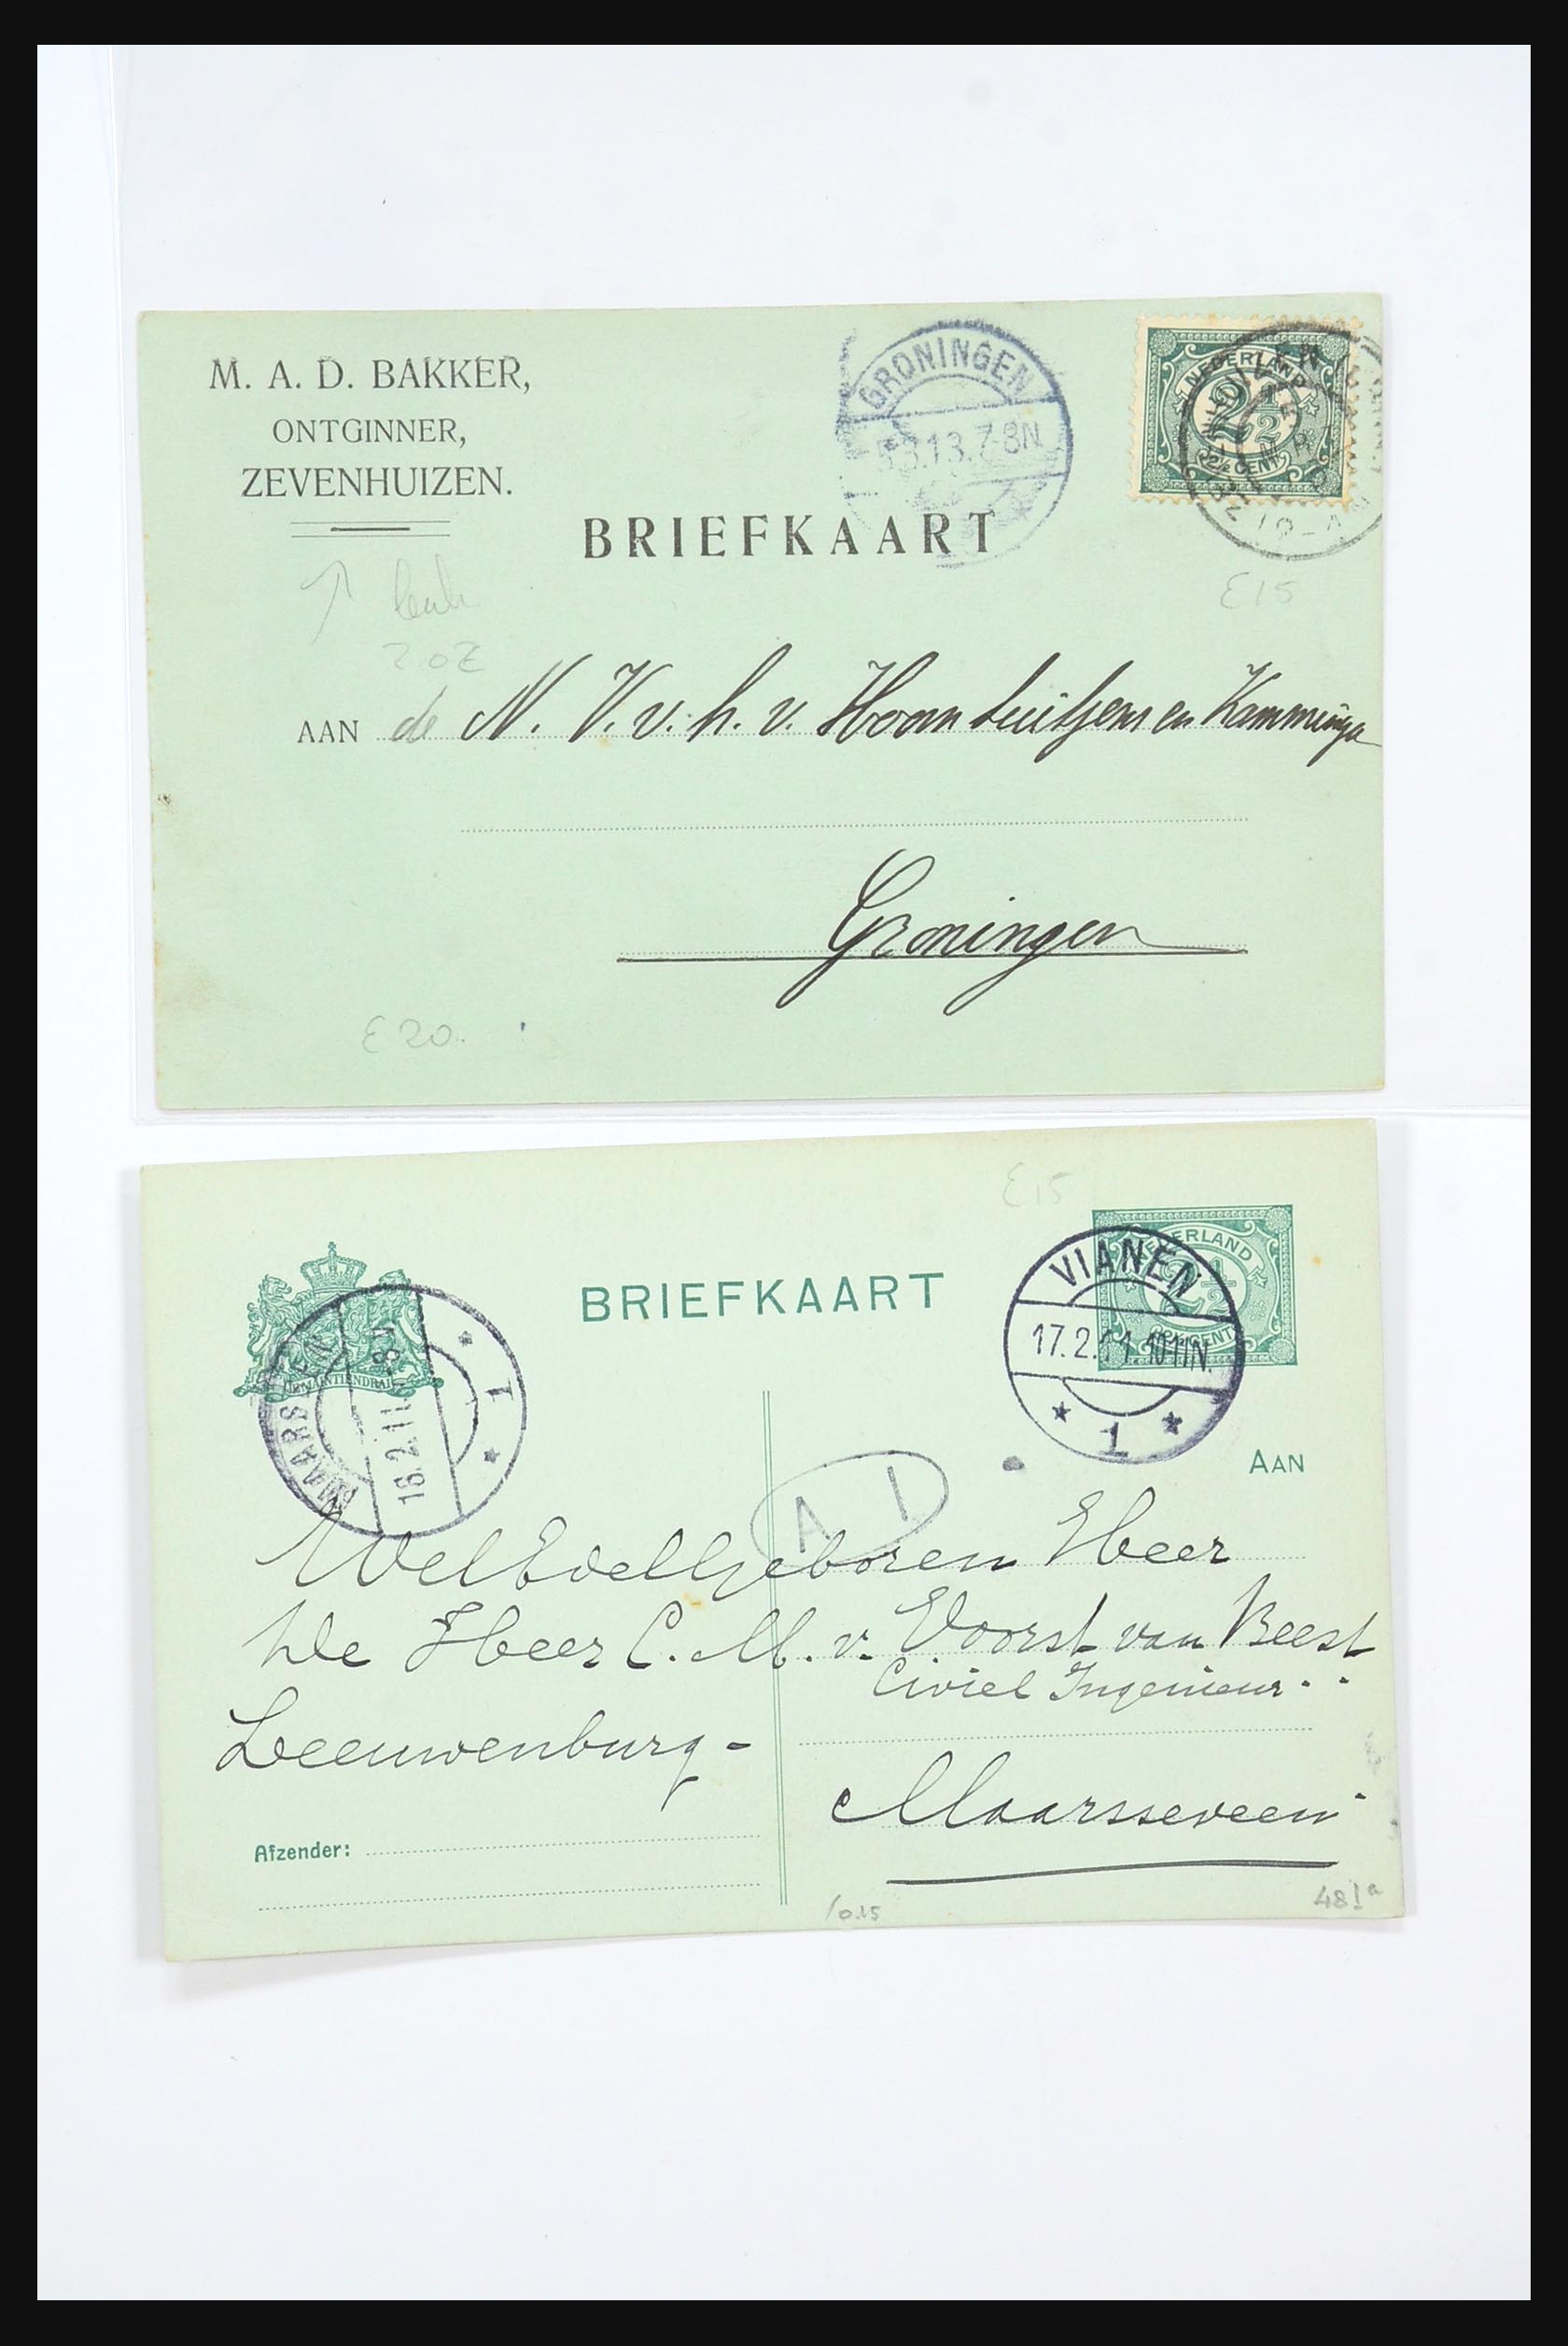 M. A. D. BAKKER,
ONTGINNER,
ZEVENHUIZEN.
GRONINGEN
5.3.13.7-8N
NEDERLAND
2½
2½ CENT
BRIEFKAART
E15
leuk
ZOZ
AAN de N. V. v. h. v. Hoorn Luitjens en Kamminga
Groningen
E 20.
E 15
NEDERLAND
2½
CENT
VIANEN
17.2.11.10-11N.
1
BRIEFKAART
18.2.11
1
AAN
A I
WelEdelGeboren Heer
De Heer C. M. v. Voorst van Beest
Civiel Ingenieur
Leeuwenburg -
Maarsseveen
Afzender:
/0.15
48 Iᵃ